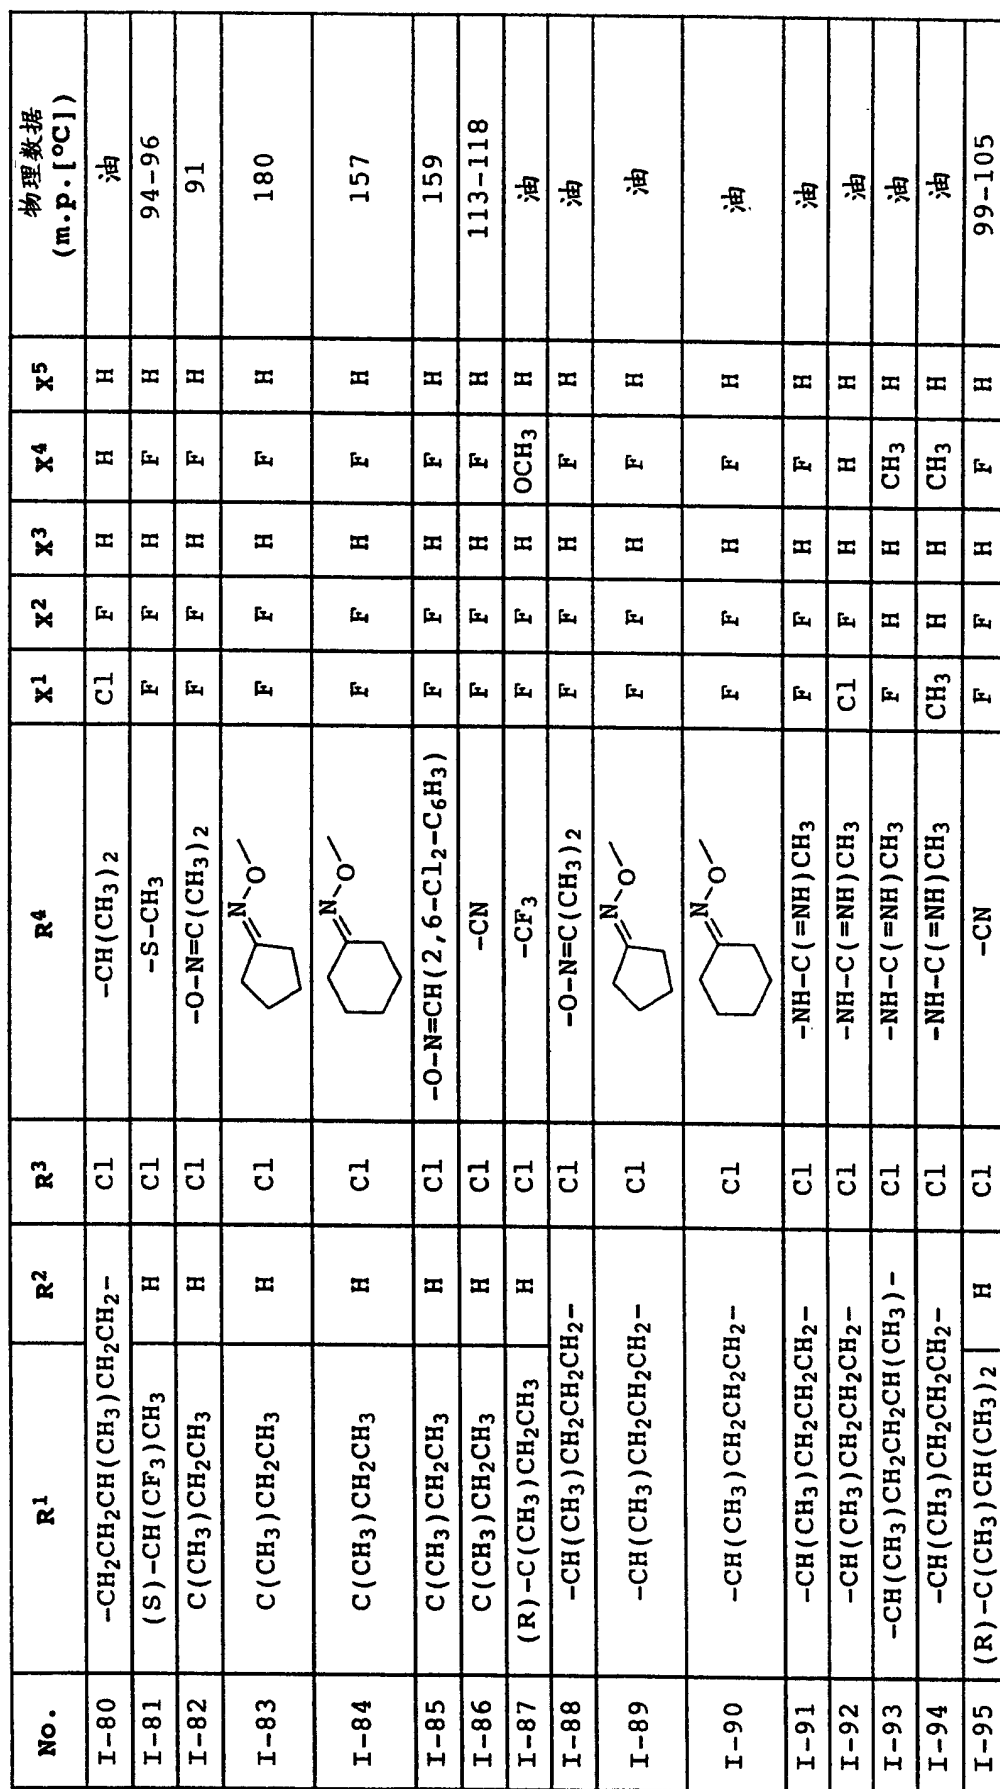 No. R1 R2 R3 R4 X1 X2 X3 X4 X5 物理数据 (m.p.[°C])
I-80 -CH2CH2CH(CH3)CH2CH2- Cl -CH(CH3)2 Cl F H H H 油
I-81 (S)-CH(CF3)CH3 H Cl -S-CH3 F F H F H 94-96
I-82 C(CH3)CH2CH3 H Cl -O-N=C(CH3)2 F F H F H 91
I-83 C(CH3)CH2CH3 H Cl N-O F F H F H 180
I-84 C(CH3)CH2CH3 H Cl N-O F F H F H 157
I-85 C(CH3)CH2CH3 H Cl -O-N=CH(2,6-Cl2-C6H3) F F H F H 159
I-86 C(CH3)CH2CH3 H Cl -CN F F H F H 113-118
I-87 (R)-C(CH3)CH2CH3 H Cl -CF3 F F H OCH3 H 油
I-88 -CH(CH3)CH2CH2CH2- Cl -O-N=C(CH3)2 F F H F H 油
I-89 -CH(CH3)CH2CH2CH2- Cl N-O F F H F H 油
I-90 -CH(CH3)CH2CH2CH2- Cl N-O F F H F H 油
I-91 -CH(CH3)CH2CH2CH2- Cl -NH-C(=NH)CH3 F F H F H 油
I-92 -CH(CH3)CH2CH2CH2- Cl -NH-C(=NH)CH3 Cl F H H H 油
I-93 -CH(CH3)CH2CH2CH(CH3)- Cl -NH-C(=NH)CH3 F H H CH3 H 油
I-94 -CH(CH3)CH2CH2CH2- Cl -NH-C(=NH)CH3 CH3 H H CH3 H 油
I-95 (R)-C(CH3)CH(CH3)2 H Cl -CN F F H F H 99-105